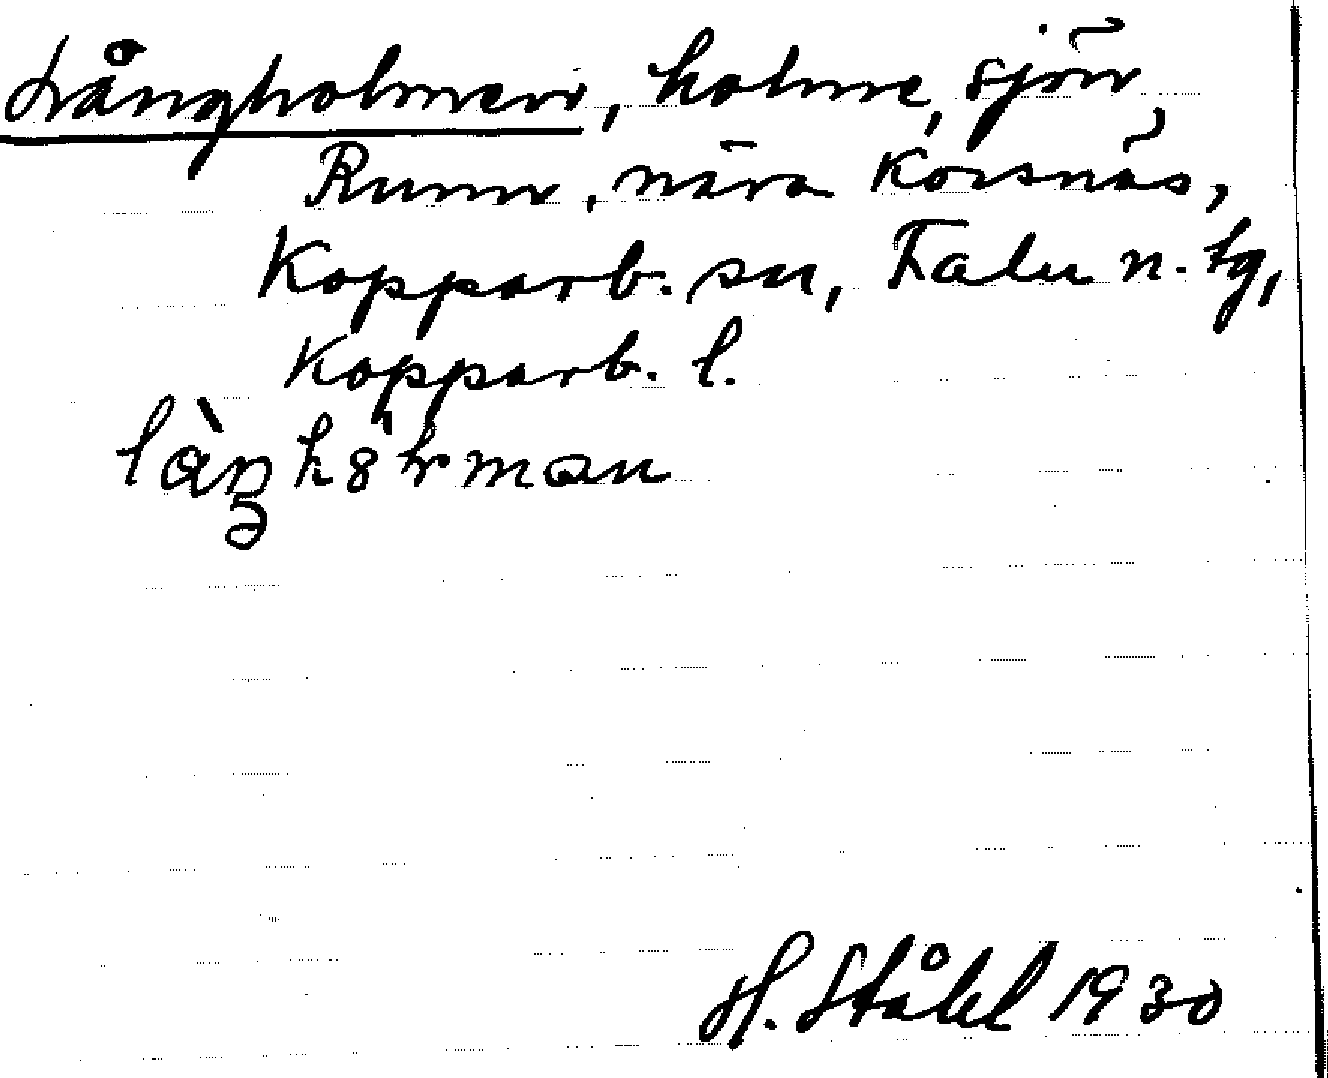 Långholmen, holme, sjön
Runn, nära Korsnäs,
Kopparb. sn, Falu n. tg,
Kopparb. l.
H. Ståhl 1930